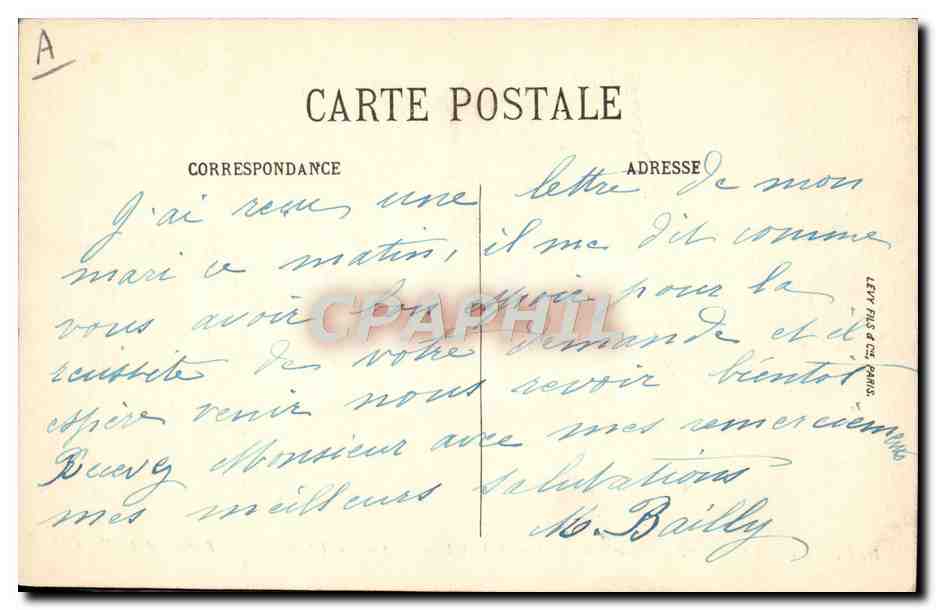 A
CARTE POSTALE
CORRESPONDANCE
ADRESSE
J'ai reçu une lettre de mon
mari ce matin, il me dit comme
vous avoir bon espoir pour la
reussite de votre demande et il
espère venir nous revoir bientôt
Monsieur avec mes remerciements
mes meilleurs salutations
M. Bailly
LEVY FILS & Cie, PARIS.
CPAPHIL